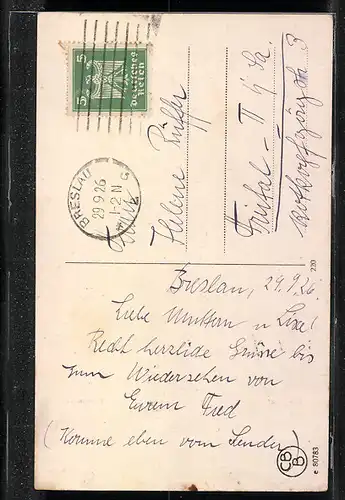 5 5
Deutsches
Reich
BRESLAU
29 9 26
1-2 N
G
Helene
Freital - II i/ Sa.
220
Breslau, 29.9.26
Liebe Muttern u Lise!
Recht herzliche Grüsse bis
zum Wiedersehen von
Eurem Fred
(Komme eben vom Sender)
CB
B
e 80783